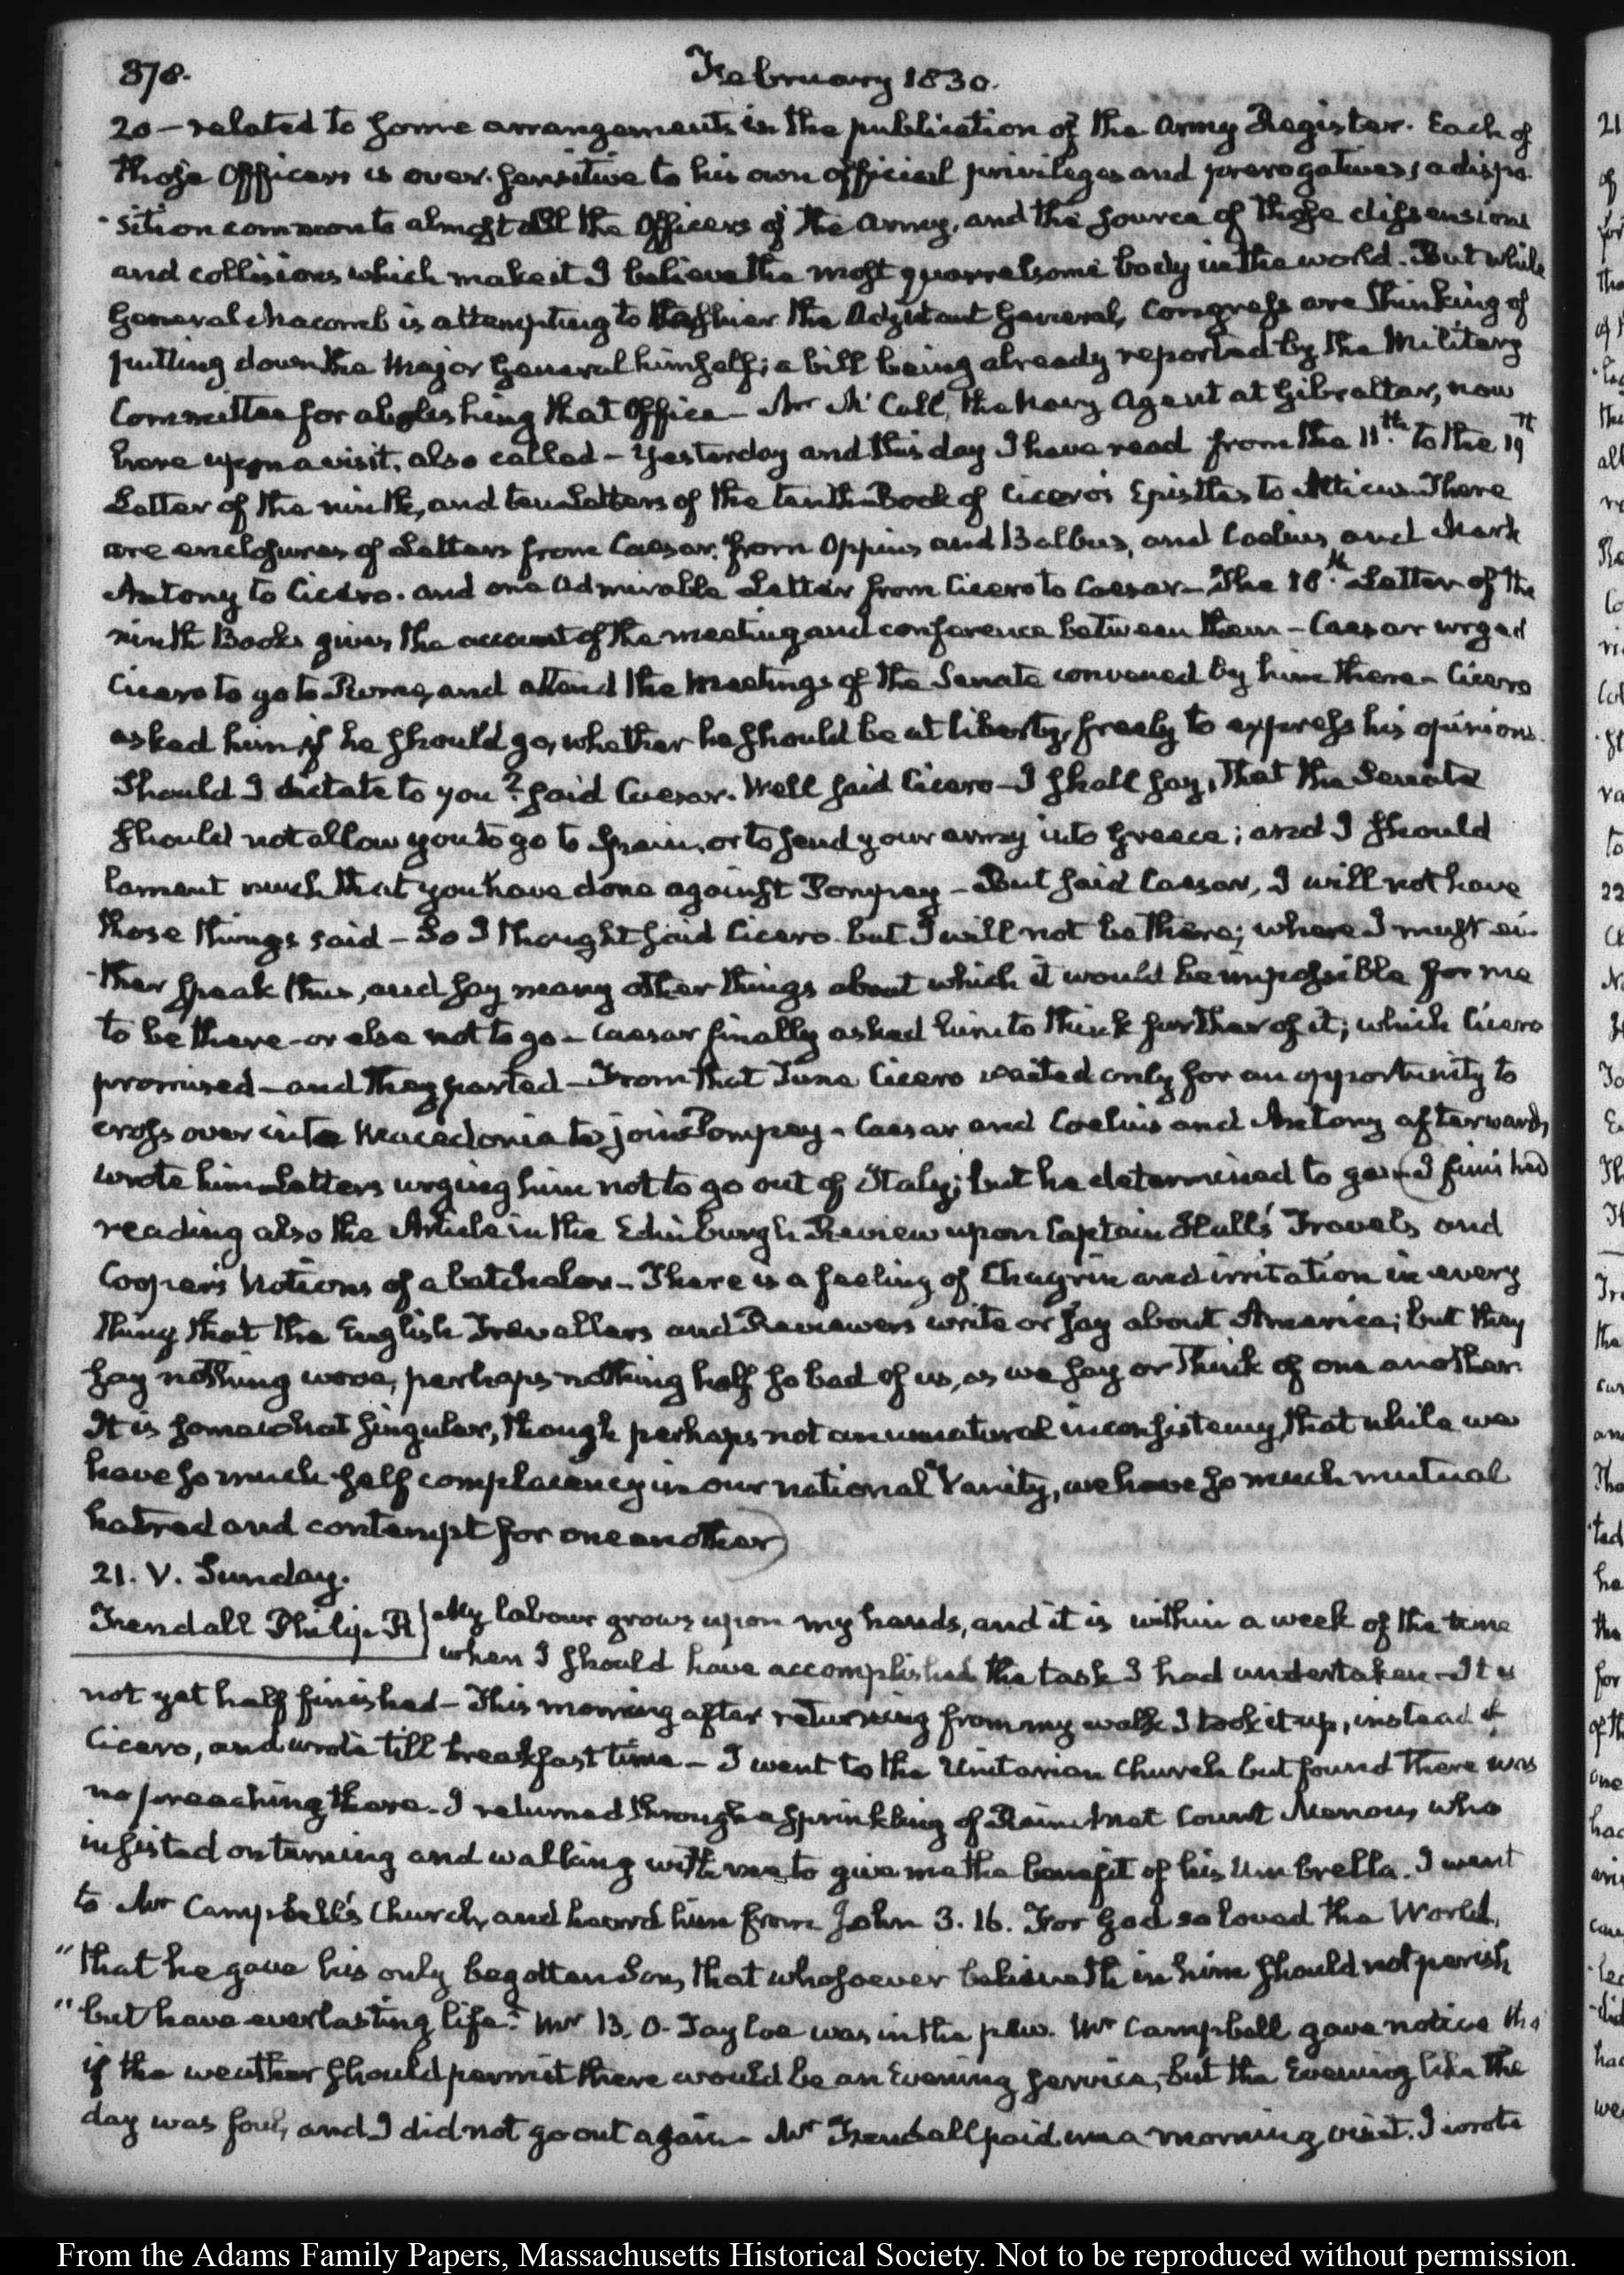 378.
February 1830.
20 — related to some arrangements in the publication of the Army Register. Each of
those Officers is over-sensitive to his own official privileges and prerogatives; a dispo-
-sition common to almost all the Officers of the Army, and the source of those dissensions
and collisions which make it I believe the most quarrelsome body in the world. But while
General Macomb is attempting to the Adjutant General, Congress are thinking of
putting down the Major General himself; a bill being already reported by the Military
Committee for abolishing that Office — Mr McCall, the Navy Agent at Gibraltar, now
here upon a visit, also called — Yesterday and this day I have read from the 11th. to the 19th
Letter of the ninth, and ten Letters of the tenth Book of Cicero's Epistles to Atticus. There
are enclosures of Letters from Caesar, from Oppius and Balbus, and Coelius and Mark
Antony to Cicero. and one admirable Letter from Cicero to Caesar — The 18th. Letter of the
ninth Book gives the account of the meeting and conference between them — Caesar urged
Cicero to go to Rome, and attend the meetings of the Senate convened by him there — Cicero
asked him if he should go, whether he should be at liberty, freely to express his opinions.
Should I dictate to you? said Caesar. Well said Cicero — I shall say, that the Senate
should not allow you to go to Spain, or to send your army into Greece; and I should
lament much that you have done against Pompey — But said Caesar, I will not have
those things said — So I thought said Cicero. but I will not be there; where I must ei-
-ther speak thus, and say many other things about which it would be impossible for me
to be there — or else not to go — Caesar finally asked him to think further of it; which Cicero
promised — and they parted — From that Time Cicero waited only for an opportunity to
cross over into Macedonia to join Pompey — Caesar and Coelius and Antony afterwards
wrote him Letters urging him not to go out of Italy; but he determined to go — (I finished
reading also the Article in the Edinburgh Review upon Captain Hall's Travels and
Cooper's Notions of a batchelor — There is a feeling of Chagrin and irritation in every
thing that the English Travellers and Reviewers write or say about America; but they
say nothing worse, perhaps nothing half so bad of us, as we say or think of one another.
It is somewhat singular, though perhaps not an unnatural inconsistency, that while we
have so much self complacency in our national Vanity, we have so much mutual
hatred and contempt for one another)
21. V. Sunday.
Fendall Philip. R } My labour grows upon my hands, and it is within a week of the time
when I should have accomplished the task I had undertaken — It is
not yet half finished — This morning after returning from my walk I took it up, instead of
Cicero, and wrote till breakfast time — I went to the Unitarian Church but found there was
no preaching there — I returned through a sprinkling of Rain & met Count Menou, who
insisted on turning and walking with me to give me the benefit of his Umbrella. I went
to Mr Campbell's Church, and heard him from John 3. 16. For God so loved the World,
"that he gave his only begotten Son, that whosoever believeth in him should not perish
"but have everlasting life." Mr B. O. Tayloe was in the pew. Mr Campbell gave notice tha
if the weather should permit there would be an Evening service, but the Evening like the
day was foul, and I did not go out again — Mr Fendall paid me a morning visit. I wrote
From the Adams Family Papers, Massachusetts Historical Society. Not to be reproduced without permission.